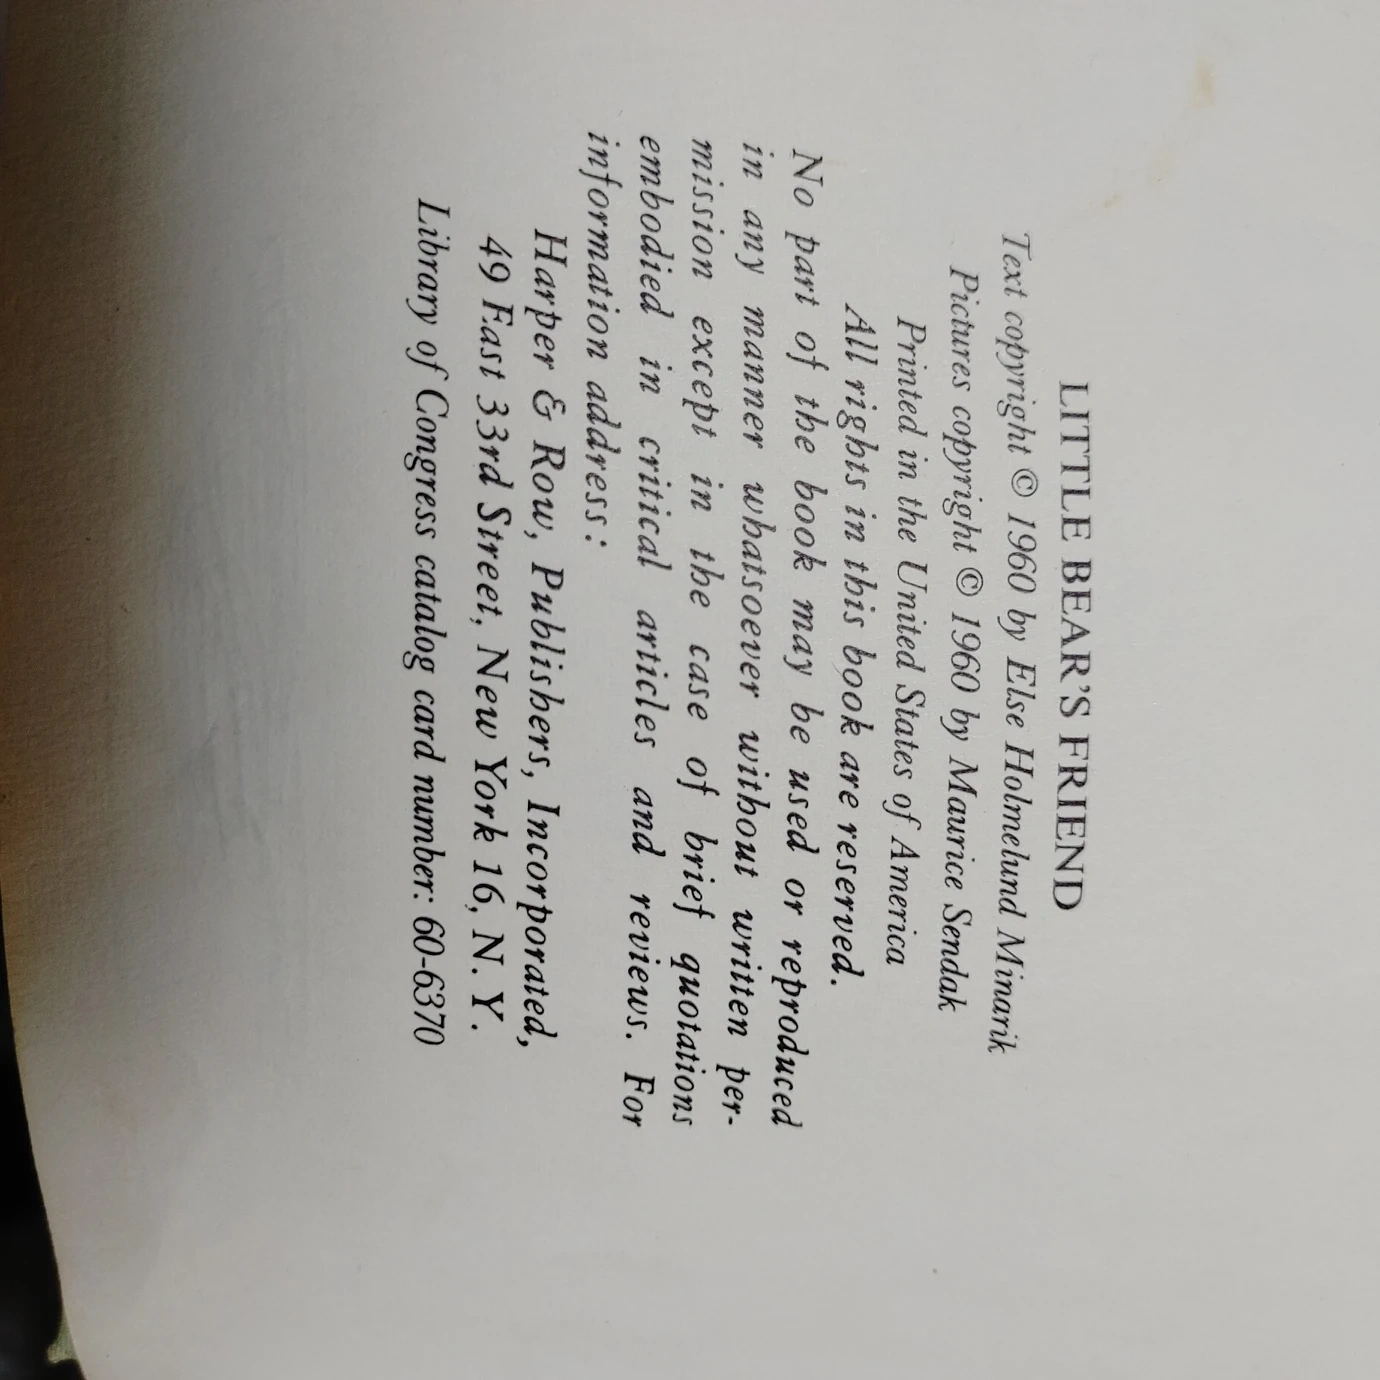 LITTLE BEAR'S FRIEND
Text copyright © 1960 by Else Holmelund Minarik
Pictures copyright © 1960 by Maurice Sendak
Printed in the United States of America
All rights in this book are reserved.
No part of the book may be used or reproduced
in any manner whatsoever without written per-
mission except in the case of brief quotations
embodied in critical articles and reviews. For
information address:
Harper & Row, Publishers, Incorporated,
49 East 33rd Street, New York 16, N. Y.
Library of Congress catalog card number: 60-6370